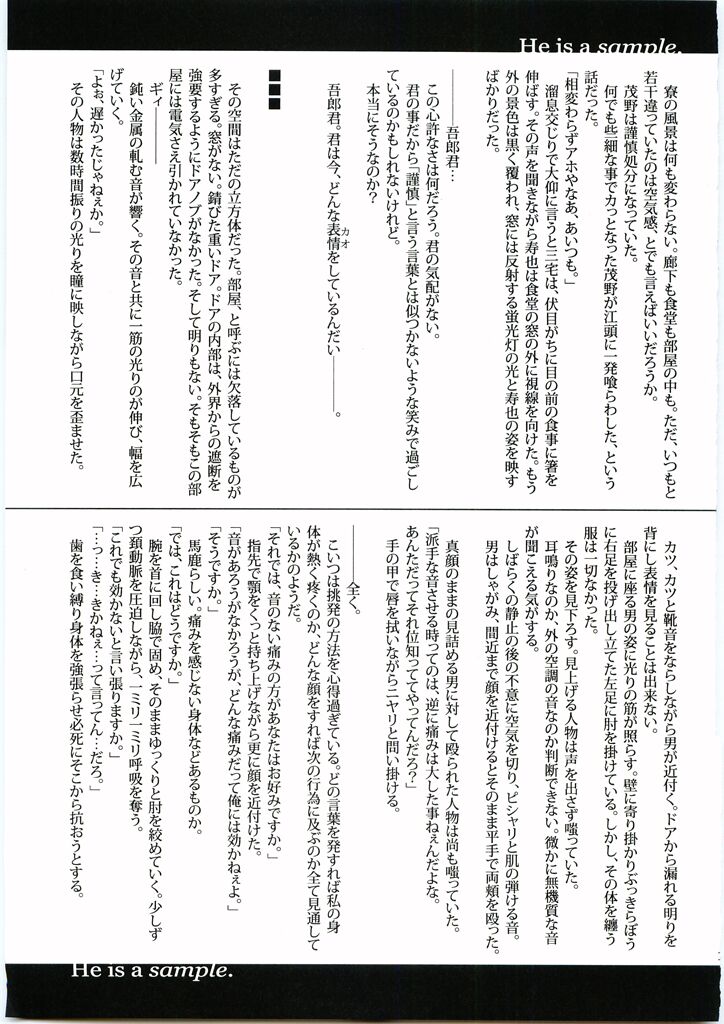 He is a sample.
寮の風景は何も変わらない。廊下も食堂も部屋の中も。ただ、いつもと
若干違っていたのは空気感、とでも言えばいいだろうか。
茂野は謹慎処分になっていた。
何でも些細な事でカっとなった茂野が江頭に一発喰らわした、という
話だった。
「相変わらずアホやなあ、あいつも。」
溜息交じりで大仰に言うと三宅は、伏目がちに目の前の食事に箸を
伸ばす。その声を聞きながら寿也は食堂の窓の外に視線を向けた。もう
外の景色は黒く覆われ、窓には反射する蛍光灯の光と寿也の姿を映す
ばかりだった。
―――吾郎君…
この心許なさは何だろう。君の気配がない。
君の事だから「謹慎」と言う言葉とは似つかないような笑みで過ごし
ているのかもしれないけれど。
本当にそうなのか?
吾郎君。君は今、どんな表情をしているんだい―――。
カオ
■■■
その空間はただの立方体だった。部屋、と呼ぶには欠落しているものが
多すぎる。窓がない。錆びた重いドア。ドアの内部は、外界からの遮断を
強要するようにドアノブがなかった。そして明りもない。そもそもこの部
屋には電気さえ引かれていなかった。
ギィ―――
鈍い金属の軋む音が響く。その音と共に一筋の光りのが伸び、幅を広
げていく。
「よぉ、遅かったじゃねぇか。」
その人物は数時間振りの光りを瞳に映しながら口元を歪ませた。
カツ、カツと靴音をならしながら男が近付く。ドアから漏れる明りを
背にし表情を見ることは出来ない。
部屋に座る男の姿に光りの筋が照らす。壁に寄り掛かりぶっきらぼう
に右足を投げ出し立てた左足に肘を掛けている。しかし、その体を纏う
服は一切なかった。
その姿を見下ろす。見上げる人物は声を出さず嗤っていた。
耳鳴りなのか、外の空調の音なのか判断できない。微かに無機質な音
が聞こえる気がする。
しばらくの静止の後の不意に空気を切り、ピシャリと肌の弾ける音。
男はしゃがみ、間近まで顔を近付けるとそのまま平手で両頬を殴った。
真顔のままの見詰める男に対して殴られた人物は尚も嗤っていた。
「派手な音させる時ってのは、逆に痛みは大した事ねぇんだよな。
あんただってそれ位知っててやってんだろ?」
手の甲で唇を拭いながらニヤリと問い掛ける。
―――全く。
こいつは挑発の方法を心得過ぎている。どの言葉を発すれば私の身
体が熱く疼くのか、どんな顔をすれば次の行為に及ぶのか全て見通して
いるかのようだ。
「それでは、音のない痛みの方があなたはお好みですか。」
指先で顎をくっと持ち上げながら更に顔を近付けた。
「音があろうがなかろうが、どんな痛みだって俺には効かねぇよ。」
「そうですか。」
馬鹿らしい。痛みを感じない身体などあるものか。
「では、これはどうですか。」
腕を首に回し脇で固め、そのままゆっくりと肘を絞めていく。少しず
つ頚動脈を圧迫しながら、一ミリ一ミリ呼吸を奪う。
「これでも効かないと言い張りますか。」
「…っ…き…きかねぇ…って言ってん…だろ。」
歯を食い縛り身体を強張らせ必死にそこから抗おうとする。
He is a sample.